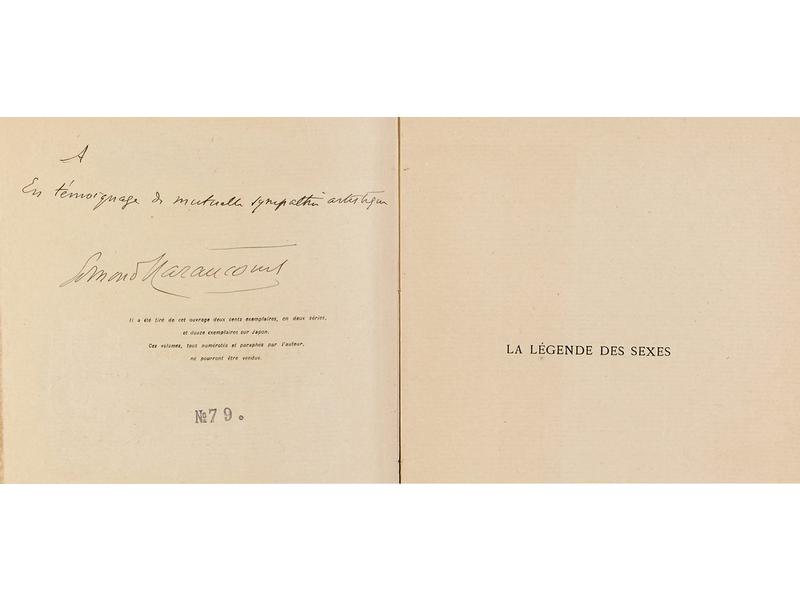 A
En témoignage de mutuelle sympathie artistique
Edmond Haraucourt
Il a été tiré de cet ouvrage deux cents exemplaires, en deux séries,
et douze exemplaires sur Japon.
Ces volumes, tous numérotés et paraphés par l'auteur,
ne pourront être vendus.
№79.
LA LÉGENDE DES SEXES